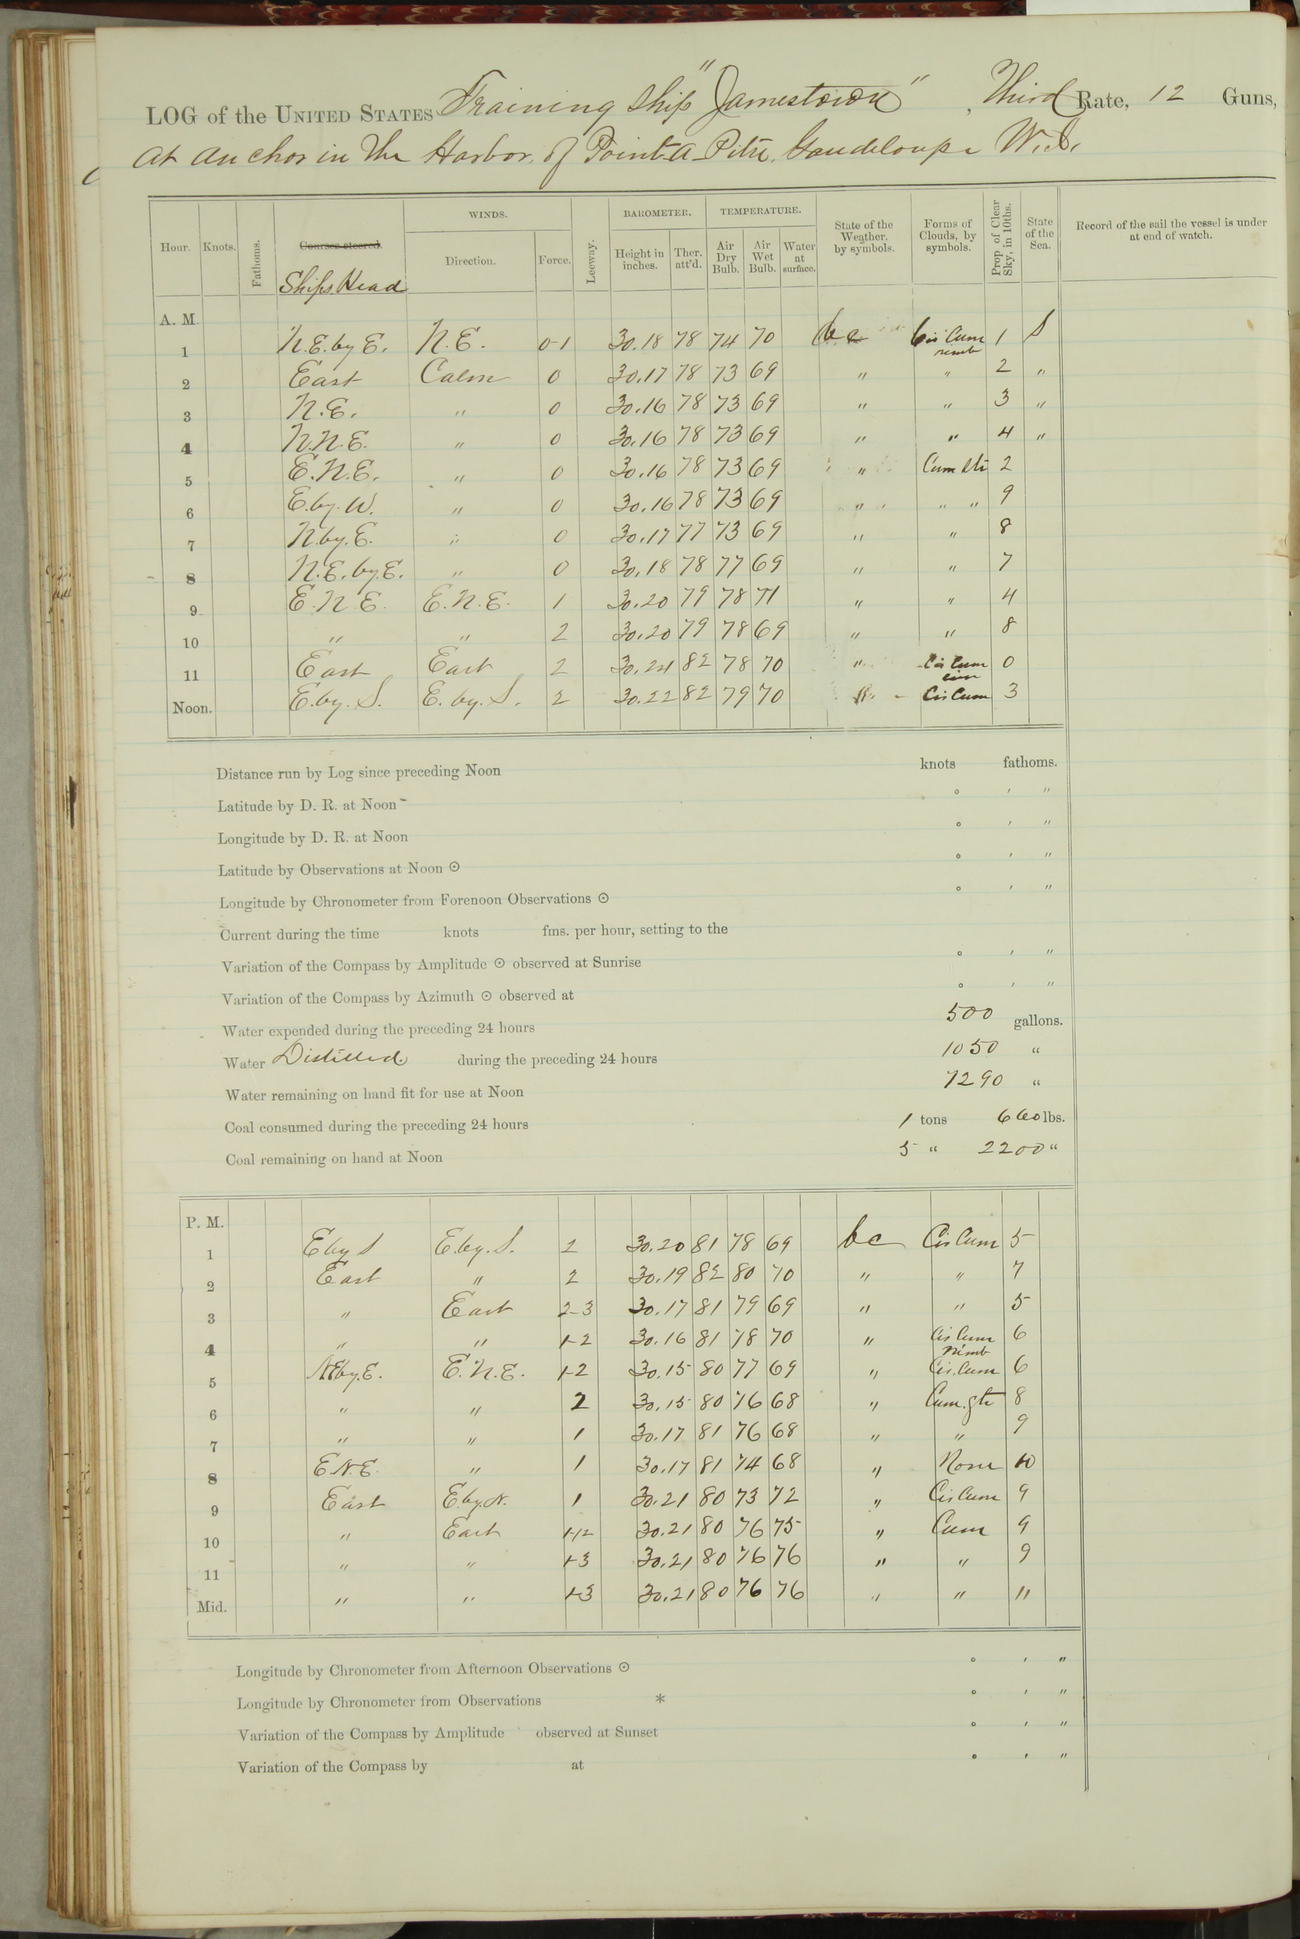 LOG of the UNITED STATES Training Ship "Jamestown", Third Rate, 12 Guns,
At anchor in the Harbor of Point-a-Pitre, Gaudeloupe W.I.
WINDS. BAROMETER. TEMPERATURE.
Hour. Knots. Fathoms. Courses steered. Ships Head Direction. Force. Leeway. Height in inches. Ther. att'd. Air Dry Bulb. Air Wet Bulb. Water at surface. State of the Weather, by symbols. Forms of Clouds, by symbols. Prop. of Clear Sky, in 10ths. State of the Sea. Record of the sail the vessel is under at end of watch.
A. M.
1 N.E. by E. N.E. 0-1 30.18 78 74 70 bc Cir Cum nimb 1 S
2 East Calm 0 30.17 78 73 69 " " 2 "
3 N.E. " 0 30.16 78 73 69 " " 3 "
4 N.N.E. " 0 30.16 78 73 69 " " 4 "
5 E.N.E. " 0 30.16 78 73 69 " Cum Str 2
6 E. by. W. " 0 30.16 78 73 69 " " " 9
7 N. by. E. " 0 30.17 77 73 69 " " 8
8 N.E. by. E. " 0 30.18 78 77 69 " " 7
9 E.N.E. E.N.E. 1 30.20 79 78 71 " " 4
10 " " 2 30.20 79 78 69 " " 8
11 East East 2 30.24 82 78 70 " Cir Cum 0
Noon. E. by. S. E. by. S. 2 30.22 82 79 70 " Cir Cum 3
Distance run by Log since preceding Noon knots fathoms.
Latitude by D. R. at Noon ° ' "
Longitude by D. R. at Noon ° ' "
Latitude by Observations at Noon ☉ ° ' "
Longitude by Chronometer from Forenoon Observations ☉ ° ' "
Current during the time knots fms. per hour, setting to the
Variation of the Compass by Amplitude ☉ observed at Sunrise ° ' "
Variation of the Compass by Azimuth ☉ observed at ° ' "
Water expended during the preceding 24 hours 500 gallons.
Water Distilled. during the preceding 24 hours 1050 "
Water remaining on hand fit for use at Noon 7290 "
Coal consumed during the preceding 24 hours 1 tons 660 lbs.
Coal remaining on hand at Noon 5 " 2200 "
P. M.
1 E by S E. by. S. 2 30.20 81 78 69 bc Cir Cum 5
2 East " 2 30.19 82 80 70 " " 7
3 " East 2-3 30.17 81 79 69 " " 5
4 " " 1-2 30.16 81 78 70 " Cir Cum Nimb 6
5 NE by. E. E.N.E. 1-2 30.15 80 77 69 " Cir. Cum 6
6 " " 2 30.15 80 76 68 " Cum. Str 8
7 " " 1 30.17 81 76 68 " " 9
8 E.N.E. " 1 30.17 81 74 68 " None 10
9 East E. by. N. 1 30.21 80 73 72 " Cir Cum 9
10 " East 1-2 30.21 80 76 75 " Cum 9
11 " " 1-3 30.21 80 76 76 " " 9
Mid. " " 1-3 30.21 80 76 76 " " "
Longitude by Chronometer from Afternoon Observations ☉ ° ' "
Longitude by Chronometer from Observations * ° ' "
Variation of the Compass by Amplitude observed at Sunset ° ' "
Variation of the Compass by at ° ' "